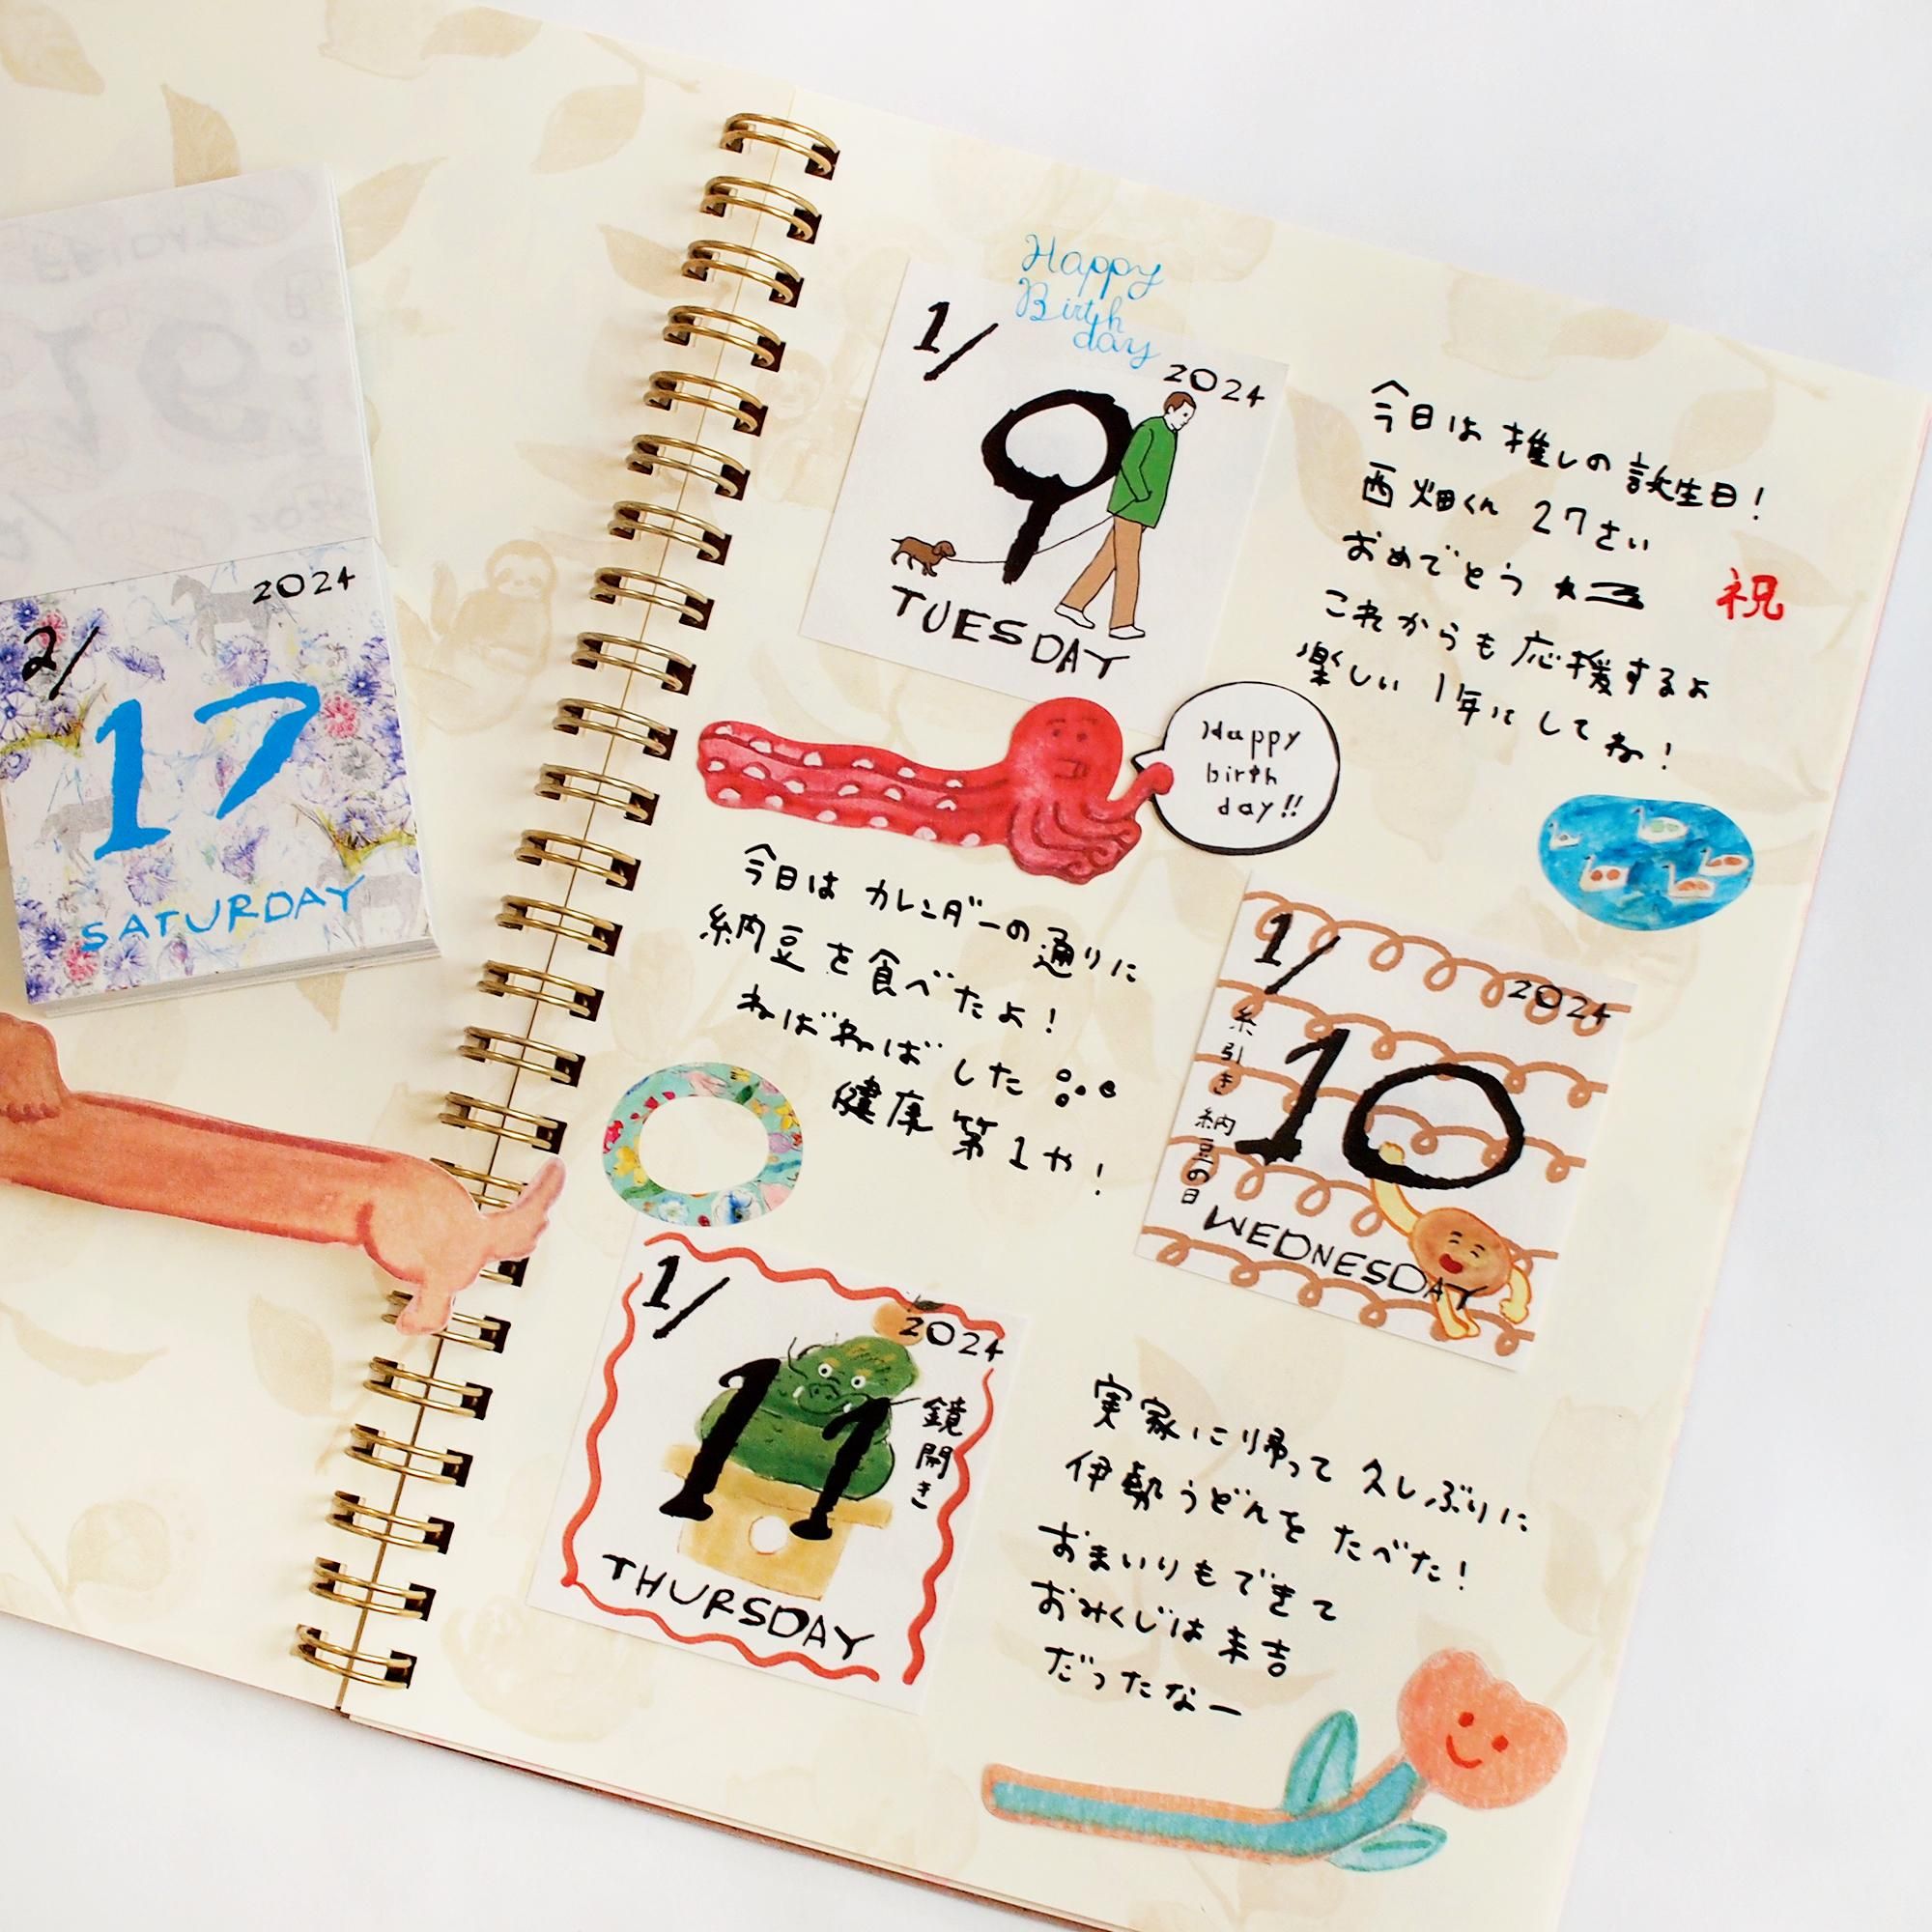 2024
2/
17
SATURDAY
Happy
Birth
day
1/
2024
9
TUESDAY
今日は推しの誕生日!
西畑くん 27さい
おめでとう
祝
これからも応援するよ
楽しい1年にしてね!
Happy
birth
day!!
今日はカレンダーの通りに
納豆を食べたよ!
ねばねばした
健康第1や!
1/
2024
10
糸引き納豆の日
WEDNESDAY
1/
2024
11
鏡開き
THURSDAY
実家に帰って久しぶりに
伊勢うどんをたべた!
おまいりもできて
おみくじは末吉
だったなー